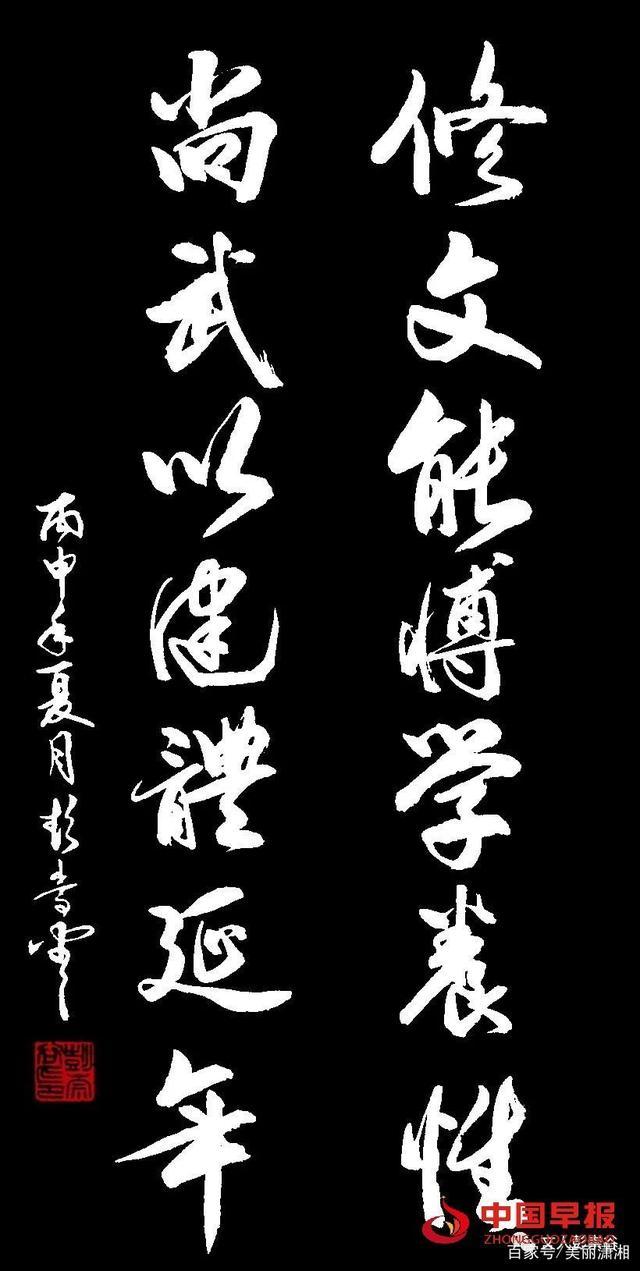 修文能博学養性
尚武以健體延年
丙申年夏月彭
中国早报
百家号/美丽潇湘